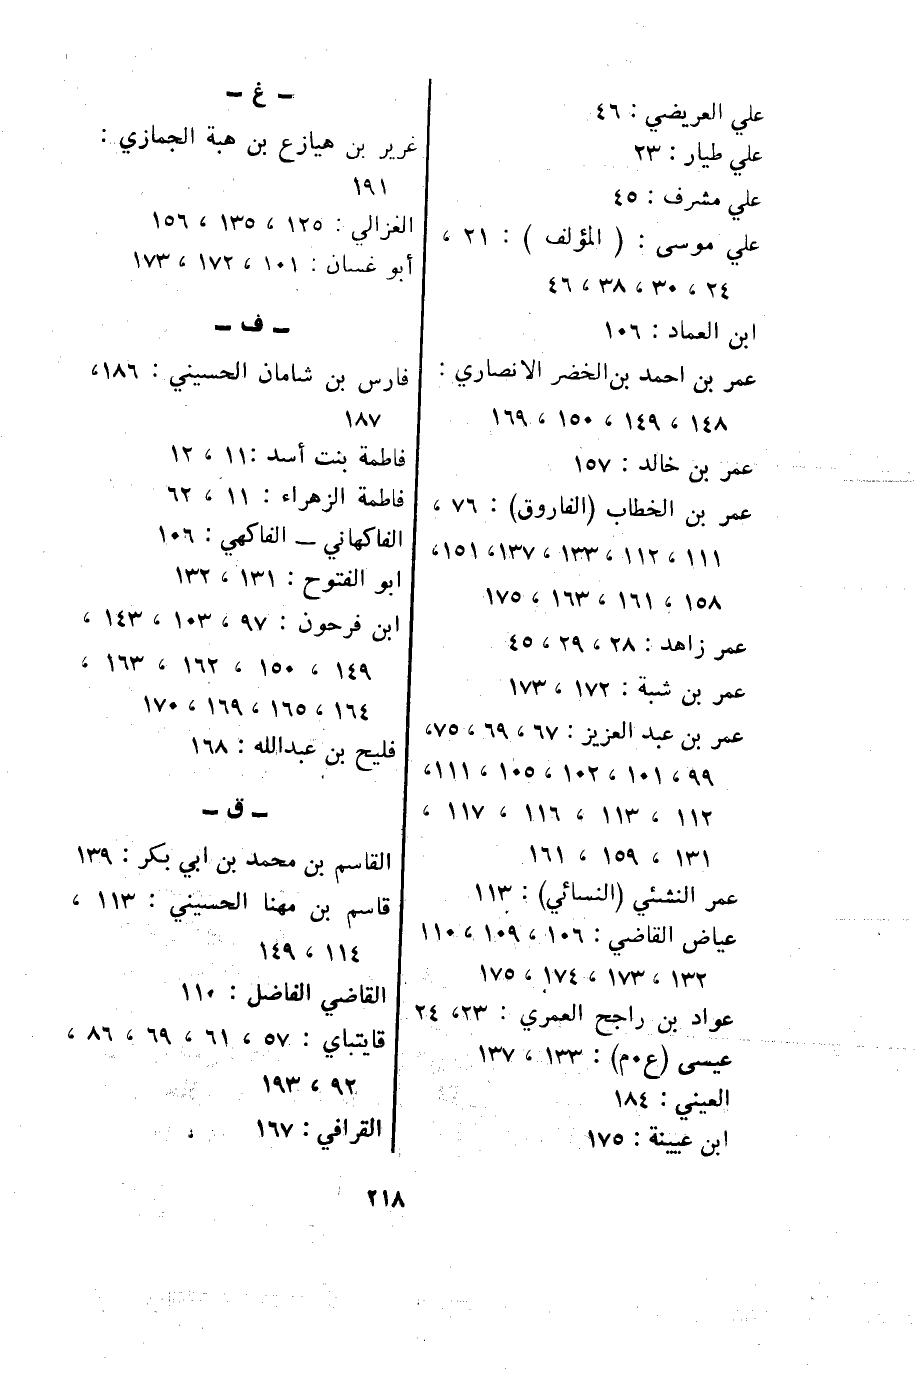 علي العريضي : ٤٦
علي طيار : ٢٣
علي مشرف : ٤٥
علي موسى : ( المؤلف ) : ٢١ ،
٢٤ ، ٣٠ ، ٣٨ ، ٤٦
ابن العماد : ١٠٦
عمر بن احمد بن الخضر الانصاري :
١٤٨ ، ١٤٩ ، ١٥٠ ، ١٦٩
عمر بن خالد : ١٥٧
عمر بن الخطاب (الفاروق) : ٧٦ ،
١١١ ، ١١٢ ، ١٣٣ ، ١٣٧ ، ١٥١ ،
١٥٨ ، ١٦١ ، ١٦٣ ، ١٧٥
عمر زاهد : ٢٨ ، ٢٩ ، ٤٥
عمر بن شبة : ١٧٢ ، ١٧٣
عمر بن عبد العزيز : ٦٧ ، ٦٩ ، ٧٥ ،
٩٩ ، ١٠١ ، ١٠٢ ، ١٠٥ ، ١١١ ،
١١٢ ، ١١٣ ، ١١٦ ، ١١٧ ،
١٣١ ، ١٥٩ ، ١٦١
عمر النشئي (النسائي) : ١١٣
عياض القاضي : ١٠٦ ، ١٠٩ ، ١١٠
١٣٢ ، ١٧٣ ، ١٧٤ ، ١٧٥
عواد بن راجح العمري : ٢٣ ، ٢٤
عيسى (ع٠م) : ١٣٣ ، ١٣٧
العيني : ١٨٤
ابن عيينة : ١٧٥
– غ –
غرير بن هيازع بن هبة الجمازي :
١٩١
الغزالي : ١٢٥ ، ١٣٥ ، ١٥٦
أبو غسان : ١٠١ ، ١٧٢ ، ١٧٣
– ف –
فارس بن شامان الحسيني : ١٨٦ ،
١٨٧
فاطمة بنت أسد : ١١ ، ١٢
فاطمة الزهراء : ١١ ، ٦٢
الفاكهاني – الفاكهي : ١٠٦
ابو الفتوح : ١٣١ ، ١٣٢
ابن فرحون : ٩٧ ، ١٠٣ ، ١٤٣ ،
١٤٩ ، ١٥٠ ، ١٦٢ ، ١٦٣ ،
١٦٤ ، ١٦٥ ، ١٦٩ ، ١٧٠
فليح بن عبدالله : ١٦٨
– ق –
القاسم بن محمد بن ابي بكر : ١٣٩
قاسم بن مهنا الحسيني : ١١٣ ،
١١٤ ، ١٤٩
القاضي الفاضل : ١١٠
قايتباي : ٥٧ ، ٦١ ، ٦٩ ، ٨٦ ،
٩٢ ، ١٩٣
القرافي : ١٦٧
٢١٨